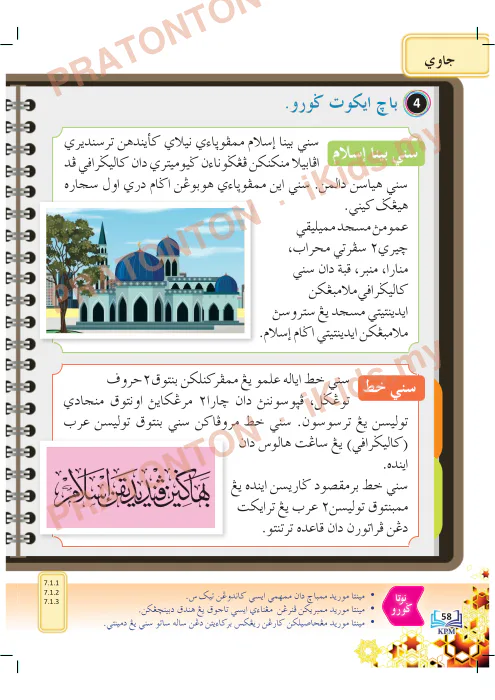 جاوي
4 باچ ايکوت ݢورو.
سني بينا إسلام
سني بينا إسلام ممڤوڽاءي نيلاي کأيندهن ترسنديري
اڤابيلا منکنکن ڤڠݢوناءن ݢيوميتري دان کاليݢرافي ڤد
سني هياسن دالمن. سني اين ممڤوڽاءي هوبوڠن اݢام دري اول سجاره
هيڠݢ کيني.
عمومڽ مسجد مميليقي
چيري٢ سڤرتي محراب،
منارا، منبر، قبة دان سني
کاليݢرافي ملامبڠکن
ايدينتيتي مسجد يڠ ستروسڽ
ملامبڠکن ايدينتيتي اݢام إسلام.
سني خط
سني خط اياله علمو يڠ ممڤرکنلکن بنتوق٢ حروف
توڠݢل، ڤڽوسوننڽ دان چارا٢ مرڠکايڽ اونتوق منجادي
توليسن يڠ ترسوسون. سني خط مروڤاکن سني بنتوق توليسن عرب
(کاليݢرافي) يڠ ساڠت هالوس دان
اينده.
سني خط برمقصود ݢاريسن اينده يڠ
ممبنتوق توليسن٢ عرب يڠ ترايکت
دڠن ڤراتورن دان قاعده ترتنتو.
بهاݢين ڤنديديقن إسلام
7.1.1
7.1.2
7.1.3
نوتا
ݢورو
• مينتا موريد ممباچ دان ممهمي ايسي کاندوڠن تيک س.
• مينتا موريد ممبريکن ڤنرڠن مڠناءي ايسي تاجوق يڠ هندق دبينچڠکن.
• مينتا موريد مڠحاصيلکن کارڠن ريڠکس برکاءيتن دڠن ساله ساتو سني يڠ دمينتي.
58
KPM
PRATONTON : iKids.my
PRATONTON : iKids.my
PRATONTON : iKids.my